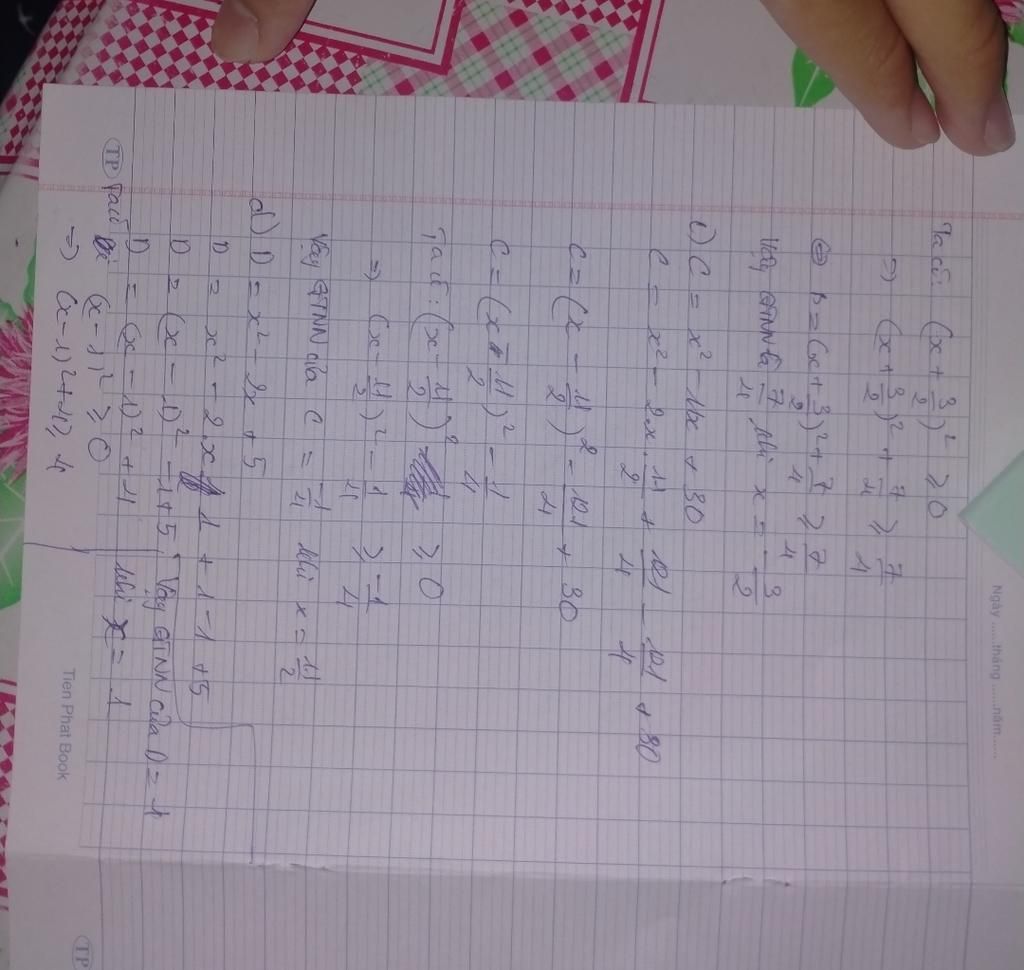 Ngày ......tháng ......năm......
Ta có: (x + 3/2)² ≥ 0
=> (x + 3/2)² + 7/4 ≥ 7/4
B = (x + 3/2)² + 7/4 ≥ 7/4
Vậy GTNN là 7/4 khi x = -3/2
c) C = x² - 11x + 30
C = x² - 2x.11/2 + 121/4 - 121/4 + 30
C = (x - 11/2)² - 121/4 + 30
C = (x - 11/2)² - 1/4
Ta có: (x - 11/2)² ≥ 0
=> (x - 11/2)² - 1/4 ≥ -1/4
Vậy GTNN của C = -1/4 khi x = 11/2
d) D = x² - 2x + 5
D = x² - 2.x 1 + 1 - 1 + 5
D = (x - 1)² - 1 + 5
D = (x - 1)² + 4
Ta có (x - 1)² ≥ 0
=> (x - 1)² + 4 ≥ 4
Vậy GTNN của D = 1
khi x = 1
TP
Tien Phat Book
TP